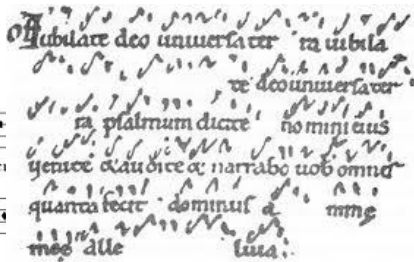 of Iubilate deo universa ter ra iubila
te deo universa ter
ra psalmum dicite nomini eius
venite & audite & narrabo vob omnes
quanta fecit dominus a nime
meę alle luia.